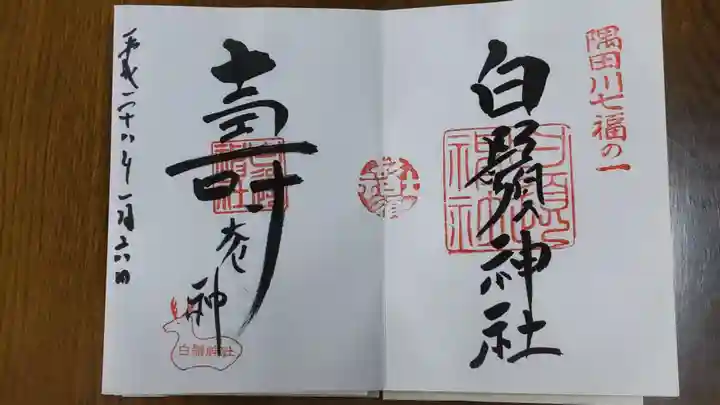 隅田川七福の一
白鬚神社
白鬚神社
壽老神
白鬚神社
平成二十八年一月六日